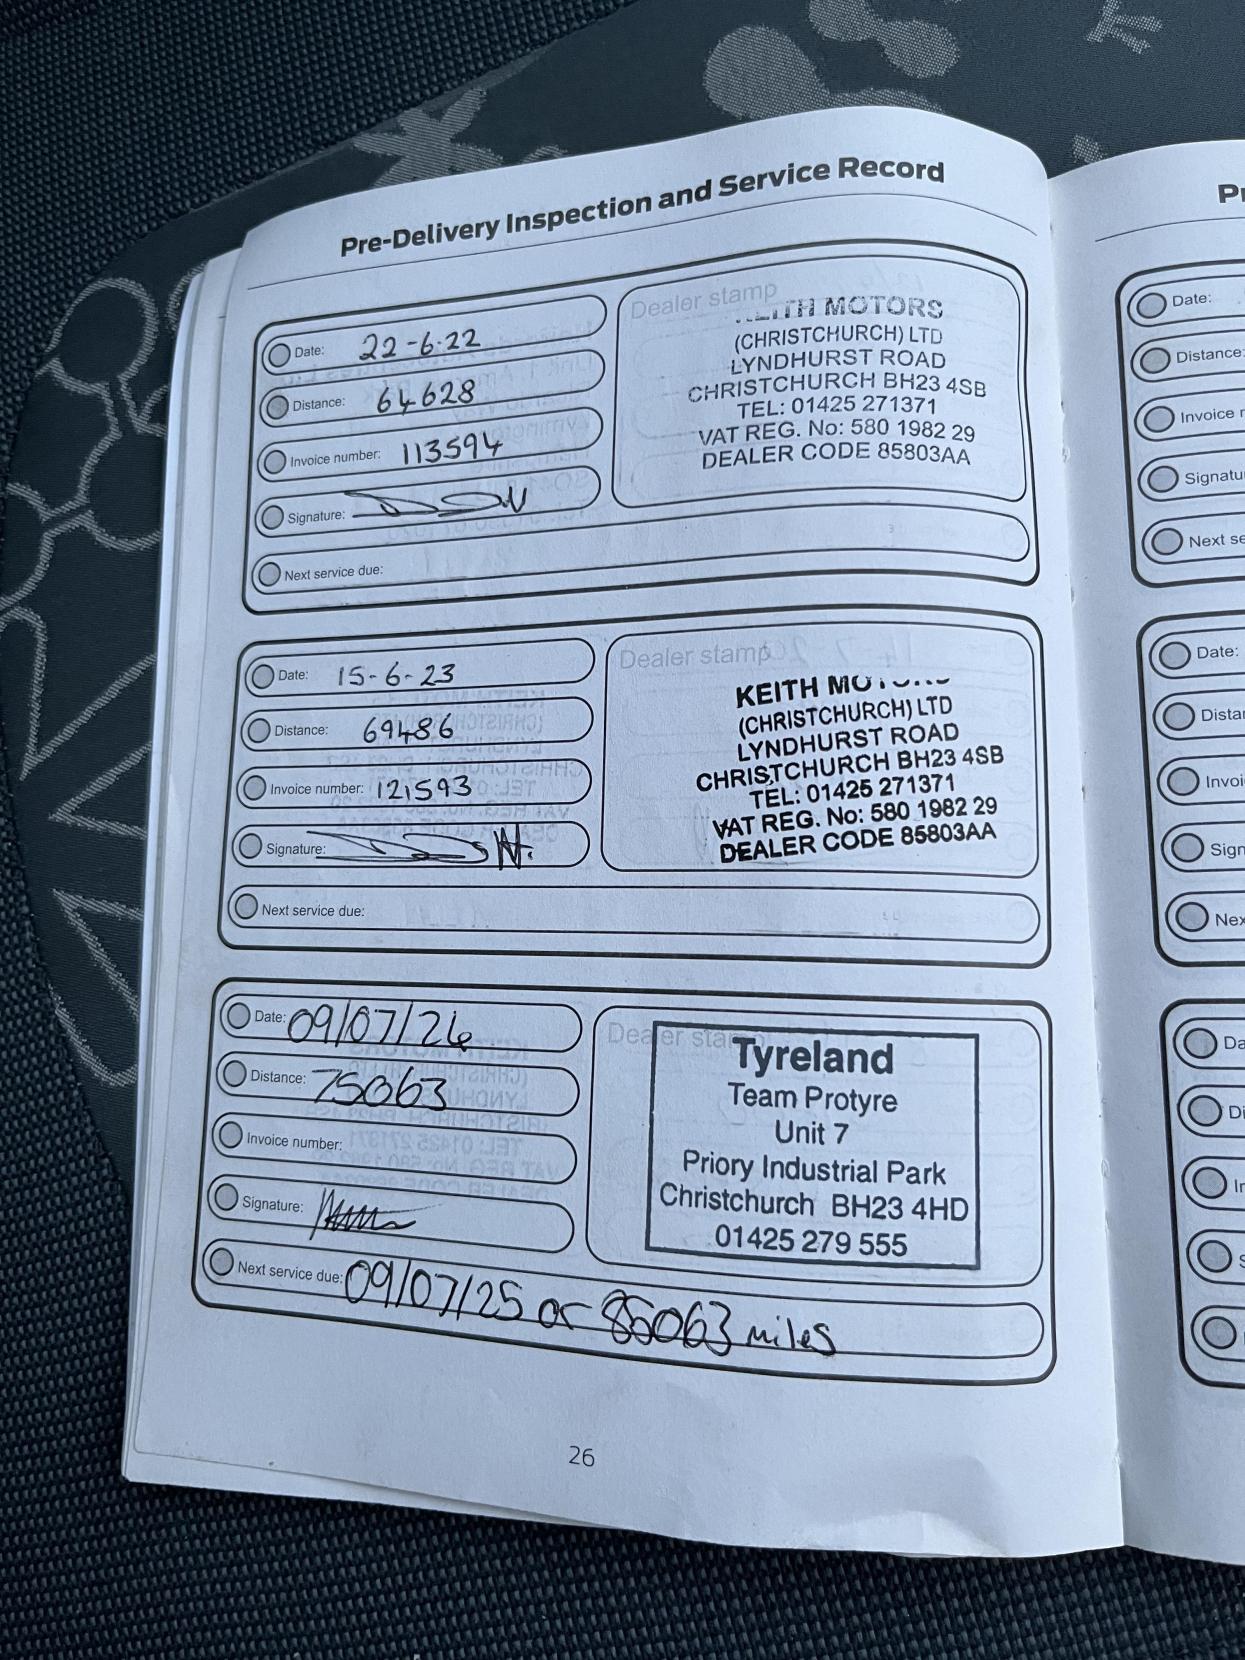 Pre-Delivery Inspection and Service Record
Date: 22-6-22
Distance: 64628
Invoice number: 113594
Signature:
Next service due:
Dealer stamp
KEITH MOTORS
(CHRISTCHURCH) LTD
LYNDHURST ROAD
CHRISTCHURCH BH23 4SB
TEL: 01425 271371
VAT REG. No: 580 1982 29
DEALER CODE 85803AA
Date: 15-6-23
Distance: 69486
Invoice number: 121593
Signature:
Next service due:
Dealer stamp
KEITH MOTORS
(CHRISTCHURCH) LTD
LYNDHURST ROAD
CHRISTCHURCH BH23 4SB
TEL: 01425 271371
VAT REG. No: 580 1982 29
DEALER CODE 85803AA
Date: 09/07/24
Distance: 75063
Invoice number:
Signature:
Next service due: 09/07/25 or 85063 miles
Dealer stamp
Tyreland
Team Protyre
Unit 7
Priory Industrial Park
Christchurch BH23 4HD
01425 279 555
26
Date:
Distance:
Date: